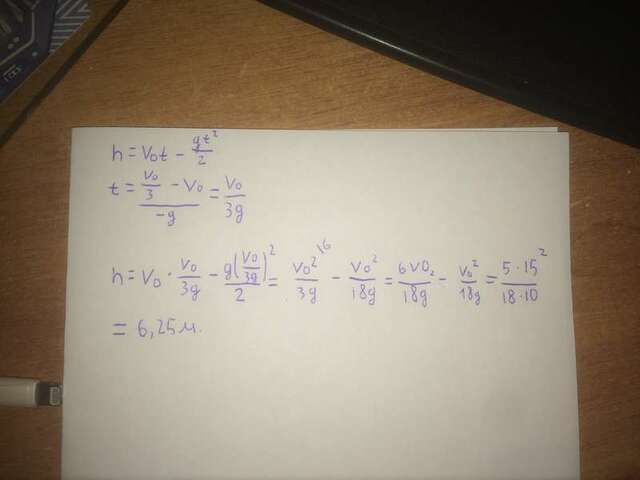 h = v₀t - gt²/2
t = (v₀/3 - v₀)/-g = v₀/3g
h = v₀ · v₀/3g - g(v₀/3g)²/2 = v₀²/3g \6 - v₀²/18g = 6v0₂/18g - v₀²/18g = 5·15²/18·10
= 6,25м.